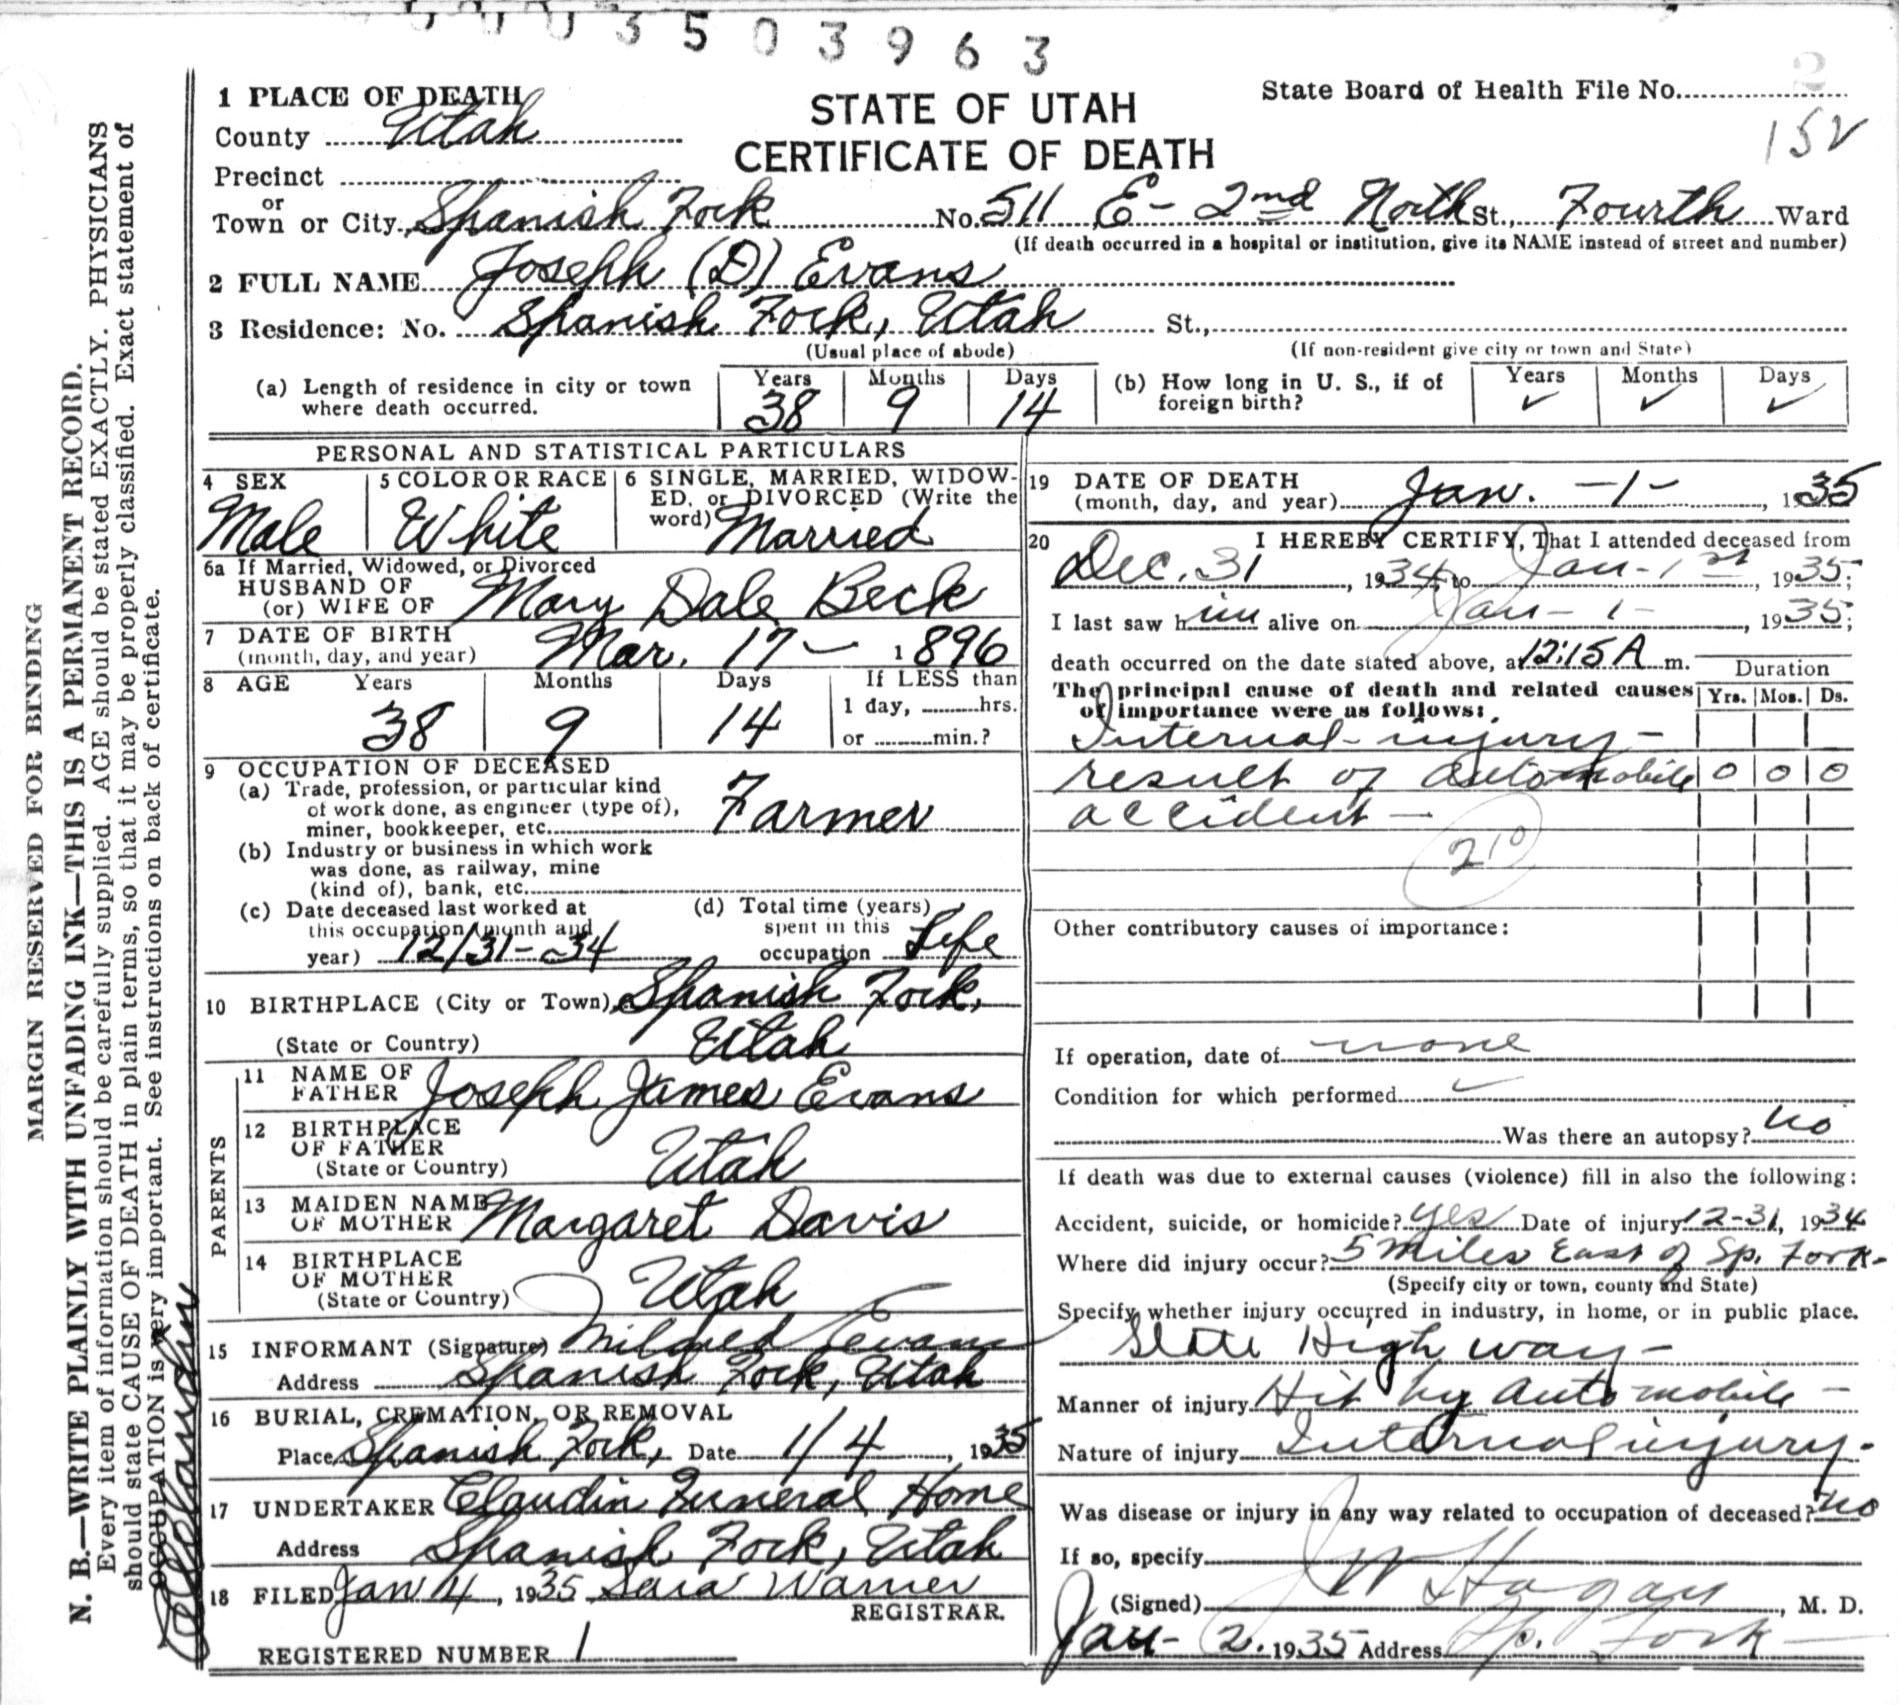 0003503963
1 PLACE OF DEATH
STATE OF UTAH
CERTIFICATE OF DEATH
State Board of Health File No.
2
152
County Utah
Precinct
or
Town or City Spanish Fork No. 511 E - 2nd North St., Fourth Ward
(If death occurred in a hospital or institution, give its NAME instead of street and number)
2 FULL NAME Joseph (D) Evans
3 Residence: No. Spanish Fork, Utah St.,
(Usual place of abode) (If non-resident give city or town and State)
(a) Length of residence in city or town where death occurred. Years 38 Months 9 Days 14
(b) How long in U. S., if of foreign birth? Years ✓ Months ✓ Days ✓
PERSONAL AND STATISTICAL PARTICULARS
4 SEX Male
5 COLOR OR RACE White
6 SINGLE, MARRIED, WIDOW-
ED, or DIVORCED (Write the
word) Married
6a If Married, Widowed, or Divorced
HUSBAND OF
(or) WIFE OF Mary Dale Beck
7 DATE OF BIRTH
(month, day, and year) Mar. 17 - 1896
8 AGE Years 38 Months 9 Days 14
If LESS than
1 day, ........hrs.
or ........min.?
9 OCCUPATION OF DECEASED
(a) Trade, profession, or particular kind
of work done, as engineer (type of),
miner, bookkeeper, etc. Farmer
(b) Industry or business in which work
was done, as railway, mine
(kind of), bank, etc.
(c) Date deceased last worked at
this occupation (month and
year) 12/31-34
(d) Total time (years)
spent in this
occupation Life
10 BIRTHPLACE (City or Town) Spanish Fork,
(State or Country) Utah
PARENTS
11 NAME OF
FATHER Joseph James Evans
12 BIRTHPLACE
OF FATHER
(State or Country) Utah
13 MAIDEN NAME
OF MOTHER Margaret Davis
14 BIRTHPLACE
OF MOTHER
(State or Country) Utah
15 INFORMANT (Signature) Mildred Evans
Address Spanish Fork, Utah
16 BURIAL, CREMATION, OR REMOVAL
Place Spanish Fork, Date 1/4, 1935
17 UNDERTAKER Claudin Funeral Home
Address Spanish Fork, Utah
18 FILED Jan 4, 1935 Sara Warner
REGISTRAR.
REGISTERED NUMBER 1
19 DATE OF DEATH
(month, day, and year) Jan. -1-, 1935
20 I HEREBY CERTIFY, That I attended deceased from
Dec. 31, 1934, to Jan - 1st, 1935;
I last saw him alive on Jan - 1 -, 1935;
death occurred on the date stated above, at 12:15 A m.
Duration
The principal cause of death and related causes
of importance were as follows:
Yrs. Mos. Ds.
Internal - injury -
result of automobile 0 0 0
accident -
210
Other contributory causes of importance:
If operation, date of none
Condition for which performed ✓
Was there an autopsy? no
If death was due to external causes (violence) fill in also the following:
Accident, suicide, or homicide? yes Date of injury 12-31, 1934
Where did injury occur? 5 miles East of Sp. Fork -
(Specify city or town, county and State)
Specify whether injury occurred in industry, in home, or in public place.
State High way -
Manner of injury Hit by Automobile -
Nature of injury Internal injury.
Was disease or injury in any way related to occupation of deceased? no
If so, specify
(Signed) J W Hagan, M. D.
Jan - 2. 1935 Address Sp. Fork
MARGIN RESERVED FOR BINDING
N. B.—WRITE PLAINLY WITH UNFADING INK—THIS IS A PERMANENT RECORD.
Every item of information should be carefully supplied. AGE should be stated EXACTLY. PHYSICIANS
should state CAUSE OF DEATH in plain terms, so that it may be properly classified. Exact statement of
OCCUPATION is very important. See instructions on back of certificate.